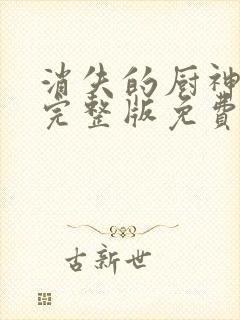 消失的厨神
完整版免費
古新世